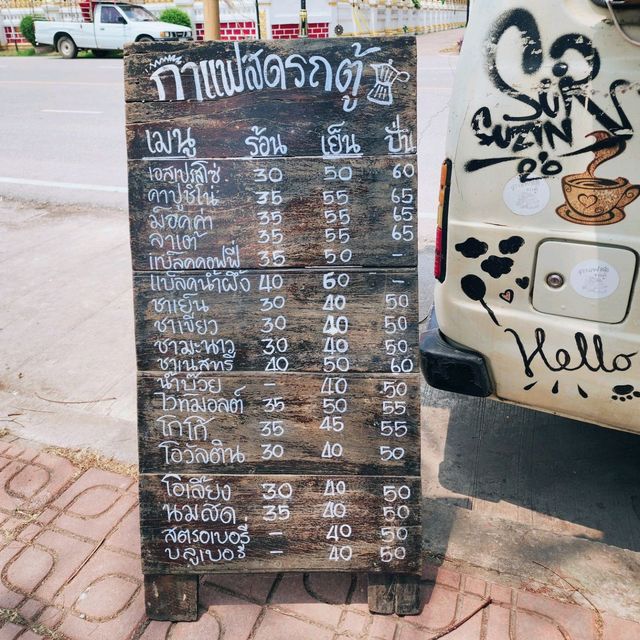 กาแฟสดรถตู้
เมนู ร้อน เย็น ปั่น
เอสเปรสโซ่ 30 50 60
คาปูชิโน่ 35 55 65
ม๊อคค่า 35 55 65
ลาเต้ 35 55 65
แบล็คคอฟฟี่ 35 50 -
แบล็คน้ำผึ้ง 40 60 -
ชาเย็น 30 40 50
ชาเขียว 30 40 50
ชามะนาว 30 40 50
ชาเนสที 40 50 60
น้ำป๋วย - 40 50
ไวท์มอลต์ 35 50 55
โกโก้ 35 45 55
โอวัลติน 30 40 50
โอเลี้ยง 30 40 50
นมสด 35 40 50
สตรอเบอรี่ - 40 50
บลูเบอรี่ - 40 50
Hello